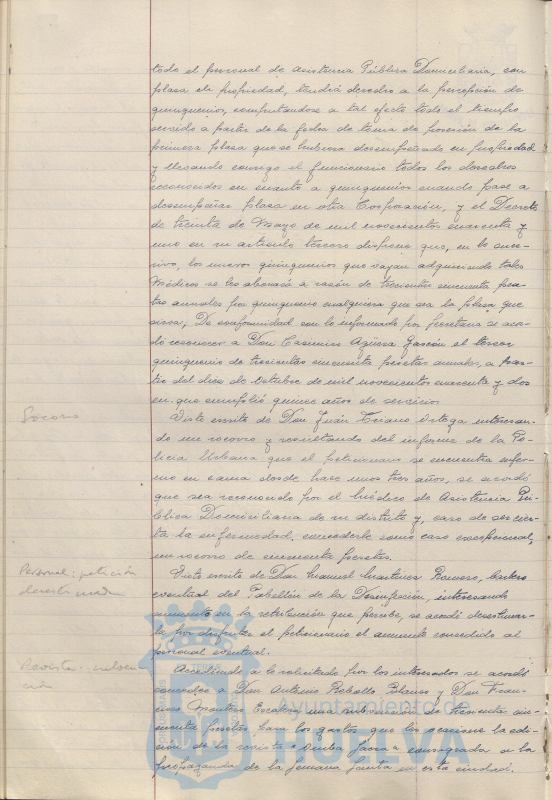 todo el personal de Asistencia Pública Domiciliaria, con
plaza en propiedad, tendrá derecho a la percepción de
quinquenios, computándose a tal efecto todo el tiempo
servido a partir de la fecha de toma de posesión de la
primera plaza que se hubiera desempeñado en propiedad
y llevando consigo el funcionario todos los derechos
reconocidos en cuanto a quinquenios cuando pase a
desempeñar plaza en otra Corporación, y el Decreto
de treinta de Mayo de mil novecientos cuarenta y
uno en su artículo tercero dispone que, en lo suce-
sivo, los nuevos quinquenios que vayan adquiriendo tales
Médicos se les abonará a razón de trescientas cincuenta pese-
tas anuales por quinquenio cualquiera que sea la plaza que
sirva; De conformidad con lo informado por Secretaría se acor-
dó reconocer a Don Casimiro Agüera Gascón el tercer
quinquenio de trescientas cincuenta pesetas anuales, a par-
tir del diez de Octubre de mil novecientos cuarenta y dos
en que cumplió quince años de servicio.
Socorro
Visto escrito de Don Juán Triano Ortega interesan-
do un socorro y resultando del informe de la Po-
licía Urbana que el peticionario se encuentra enfer-
mo en cama desde hace unos tres años, se acordó
que sea reconocido por el Médico de Asistencia Pú-
blica Domiciliaria de su distrito y, caso de ser cier-
ta la enfermedad, concederle como caso excepcional,
un socorro de cincuenta pesetas.
Personal: petición
desestimada
Visto escrito de Don Manuel Martínez Romero,
eventual del Pabellón de la Desinfección, interesando
aumento en la retribución que percibe, se acordó desestimar-
la por disfrutar el peticionario el aumento concedido al
personal eventual.
Revista: subven-
ción
Accediendo a lo solicitado por los interesados se acordó
conceder a Don Antonio Rebollo Blanco y Don Fran-
cisco Montes Escalera una subvención de trescientas cin-
cuenta pesetas, para los gastos que les ocasione la edi-
ción de la revista consagrada a la
propaganda de la Semana Santa en esta ciudad.
Ayuntamiento de
HUELVA